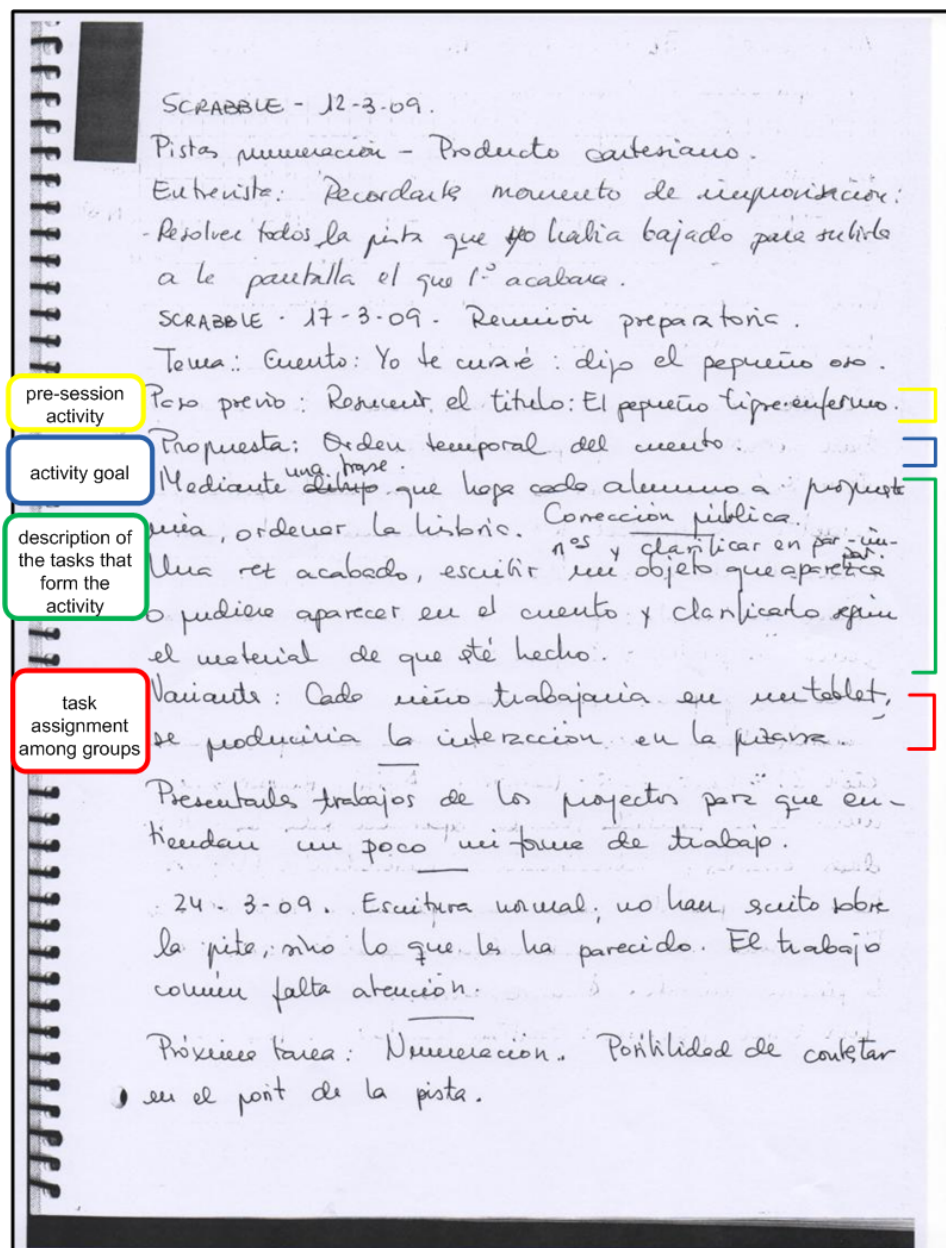 SCRABBLE - 12-3-09.
Pistas numeración - Producto cartesiano.
Entrevista: Recordarle momento de improvisación:
- Resolver todos la pista que yo había bajado para subirla
a la pantalla el que 1º acabara.
SCRABBLE - 17-3-09. Reunión preparatoria.
Tema: Cuento: Yo te curaré: dijo el pequeño oso.
pre-session
activity
Paso previo: el título: El pequeño tigre enfermo.
activity goal
Propuesta: Orden temporal del cuento.
una frase.
Mediante dibujo que haga cada alumno a propuesta
mía, ordenar la historia. Corrección pública.
nos y clasificar en par-im-
par.
description of
the tasks that
form the
activity
Una vez acabado, escribir un objeto que aparezca
o pudiera aparecer en el cuento y clasificarlo según
el material de que esté hecho.
task
assignment
among groups
Variante: Cada niño trabajaría en un tablet,
se produciría la interacción en la pizarra.
Presentarles trabajos de los proyectos para que en-
tiendan un poco mi forma de trabajo.
24-3-09. Escritura normal; no han escrito sobre
la pista, sino lo que les ha parecido. El trabajo
común falta atención.
Próxima tarea: Numeración. Posibilidad de contestar
en el posit de la pista.